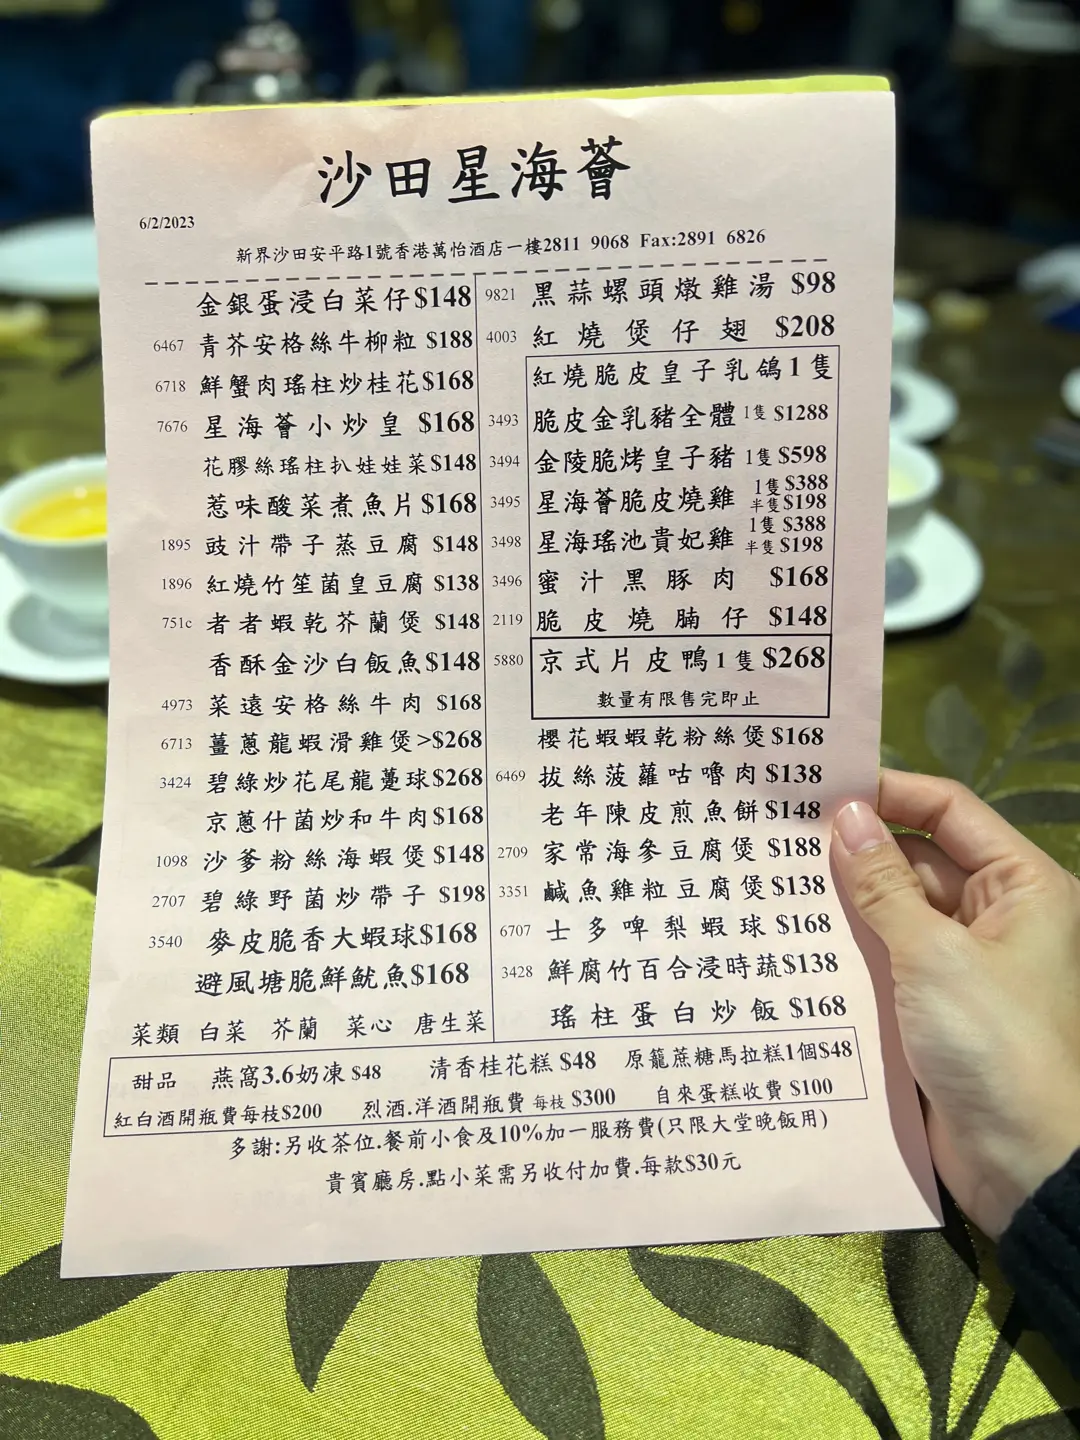 沙田星海薈
6/2/2023
新界沙田安平路1號香港萬怡酒店一樓2811 9068 Fax:2891 6826
金銀蛋浸白菜仔$148
6467 青芥安格絲牛柳粒 $188
6718 鮮蟹肉瑤柱炒桂花$168
7676 星海薈小炒皇 $168
花膠絲瑤柱扒娃娃菜$148
惹味酸菜煮魚片$168
1895 豉汁帶子蒸豆腐 $148
1896 紅燒竹笙菌皇豆腐 $138
751c 者者蝦乾芥蘭煲 $148
香酥金沙白飯魚$148
4973 菜遠安格絲牛肉 $168
6713 薑蔥龍蝦滑雞煲>$268
3424 碧綠炒花尾龍躉球$268
京蔥什菌炒和牛肉$168
1098 沙爹粉絲海蝦煲$148
2707 碧綠野菌炒帶子 $198
3540 麥皮脆香大蝦球$168
避風塘脆鮮魷魚$168
菜類 白菜 芥蘭 菜心 唐生菜
9821 黑蒜螺頭燉雞湯 $98
4003 紅燒煲仔翅 $208
紅燒脆皮皇子乳鴿1隻
3493 脆皮金乳豬全體 1隻 $1288
3494 金陵脆烤皇子豬 1隻 $598
3495 星海薈脆皮燒雞 1隻 $388 半隻 $198
3498 星海瑤池貴妃雞 1隻 $388 半隻 $198
3496 蜜汁黑豚肉 $168
2119 脆皮燒腩仔 $148
5880 京式片皮鴨1隻 $268
數量有限售完即止
櫻花蝦蝦乾粉絲煲$168
6469 拔絲菠蘿咕嚕肉$138
老年陳皮煎魚餅$148
2709 家常海參豆腐煲 $188
3351 鹹魚雞粒豆腐煲$138
6707 士多啤梨蝦球$168
3428 鮮腐竹百合浸時蔬$138
瑤柱蛋白炒飯 $168
甜品 燕窩3.6奶凍 $48 清香桂花糕 $48 原籠蔗糖馬拉糕1個$48
紅白酒開瓶費每枝$200 烈酒.洋酒開瓶費 每枝 $300 自來蛋糕收費 $100
多謝:另收茶位.餐前小食及10%加一服務費(只限大堂晚飯用)
貴賓廳房.點小菜需另收付加費.每款$30元